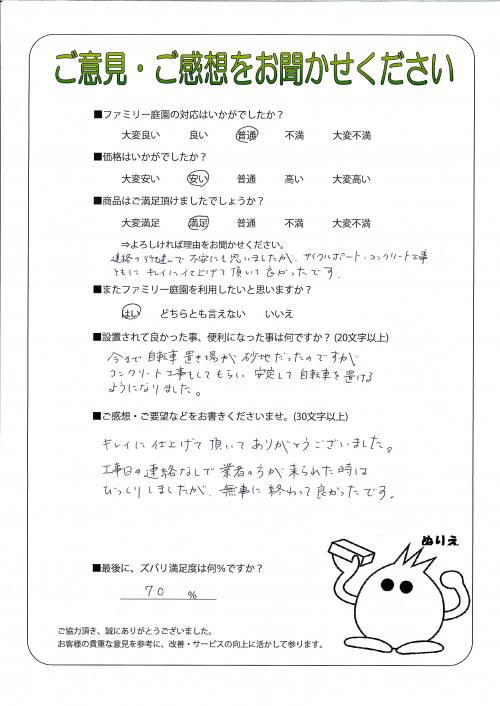 ご意見・ご感想をお聞かせください
■ファミリー庭園の対応はいかがでしたか？
大変良い 良い 普通 不満 大変不満
■価格はいかがでしたか？
大変安い 安い 普通 高い 大変高い
■商品はご満足頂けましたでしょうか？
大変満足 満足 普通 不満 大変不満
⇒よろしければ理由をお聞かせください。
連絡の行違いで不安にも思いましたが、サイクルポート・コンクリート工事
ともに キレイに仕上げて頂いて良かったです。
■またファミリー庭園を利用したいと思いますか？
はい どちらとも言えない いいえ
■設置されて良かった事、便利になった事は何ですか？(20文字以上)
今まで自転車置き場が砂地だったのですが
コンクリート工事をしてもらい 安定して自転車を置ける
ようになりました。
■ご感想・ご要望などをお書きくださいませ。(30文字以上)
キレイに仕上げて頂いてありがとうございました。
工事日の連絡なしで業者の方が来られた時は
びっくりしましたが、無事に終わって良かったです。
ぬりえ
■最後に、ズバリ満足度は何％ですか？
70 ％
ご協力頂き、誠にありがとうございました。
お客様の貴重な意見を参考に、改善・サービスの向上に活かして参ります。